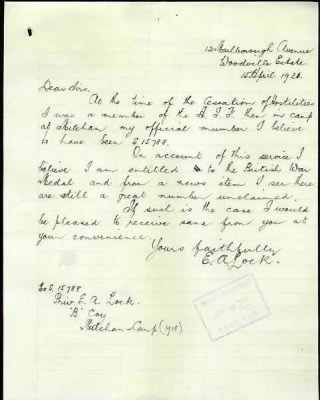 12 Marlborough Avenue
Woodville Estate
15 April 1926.
Dear Sirs,
At the time of the Cessation of Hostilities
I was a member of the A.I.F. then in camp
at Mitcham my official number I believe
to have been S.15788.
On account of this service I
believe I am entitled to the British War
Medal and from a news item I see there
are still a great number unclaimed.
If such is the case I would
be pleased to receive same from you at
your convenience
Yours faithfully
E. A. Lock.
S.15788
Priv E. A. Lock.
"B" Coy
Mitcham Camp (1918)